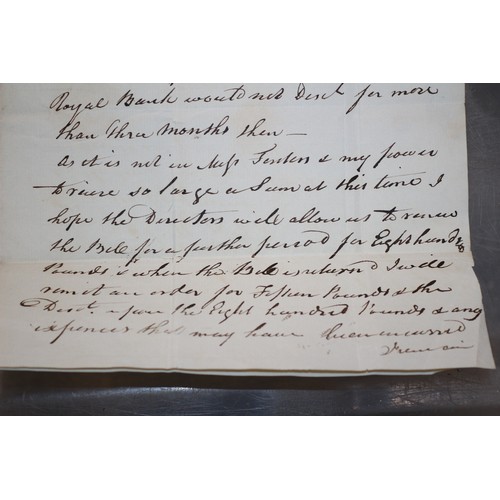 Royal Bank would not Disct. for more
than three Months then —
As it is not in Messrs & my power
to raise so large a Sum at this time I
hope the Directors will allow us to renew
the Bill for a further period for Eight hundd
Pounds & when the Bill is returned I will
remit an order for Fifteen Pounds & the
Disct. upon the Eight hundred Pounds & any
expences that may have been incurred
I remain